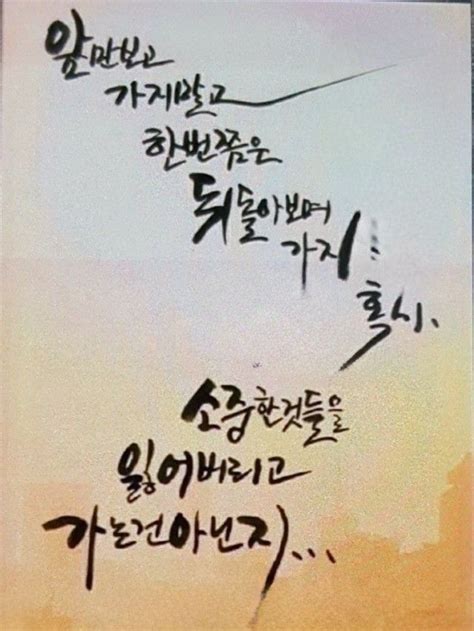 앞만보고
가지말고
한번쯤은
뒤돌아보며
가지...
혹시.
소중한것들을
잃어버리고
가는건아닌지...